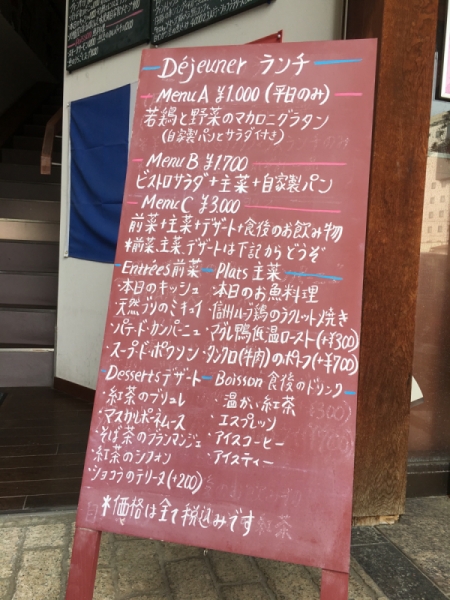 Déjeuner ランチ
Menu A ¥1.000 (平日のみ)
若鶏と野菜のマカロニグラタン
(自家製パンとサラダ付き)
Menu B ¥1.700
ビストロサラダ+主菜+自家製パン
Menu C ¥3.000
前菜+主菜+デザート+食後のお飲み物
*前菜、主菜、デザートは下記からどうぞ
Entrées 前菜 Plats 主菜
・本日のキッシュ ・本日のお魚料理
・天然ブリのミキュイ ・信州ハーブ鶏のラクレット焼き
・パテ・ド・カンパーニュ ・マグレ鴨低温ロースト(+¥300)
・スープ・ド・ポワソン ・タンクロ(牛肉)のポトーフ(+¥700)
Desserts デザート Boisson 食後のドリンク
・紅茶のブリュレ ・温かい紅茶
・マスカルポーネムース ・エスプレッソ
・そば茶のブランマンジェ ・アイスコーヒー
・紅茶のシフォン ・アイスティー
・ショコラのテリーヌ(+200)
*価格は全て税込みです